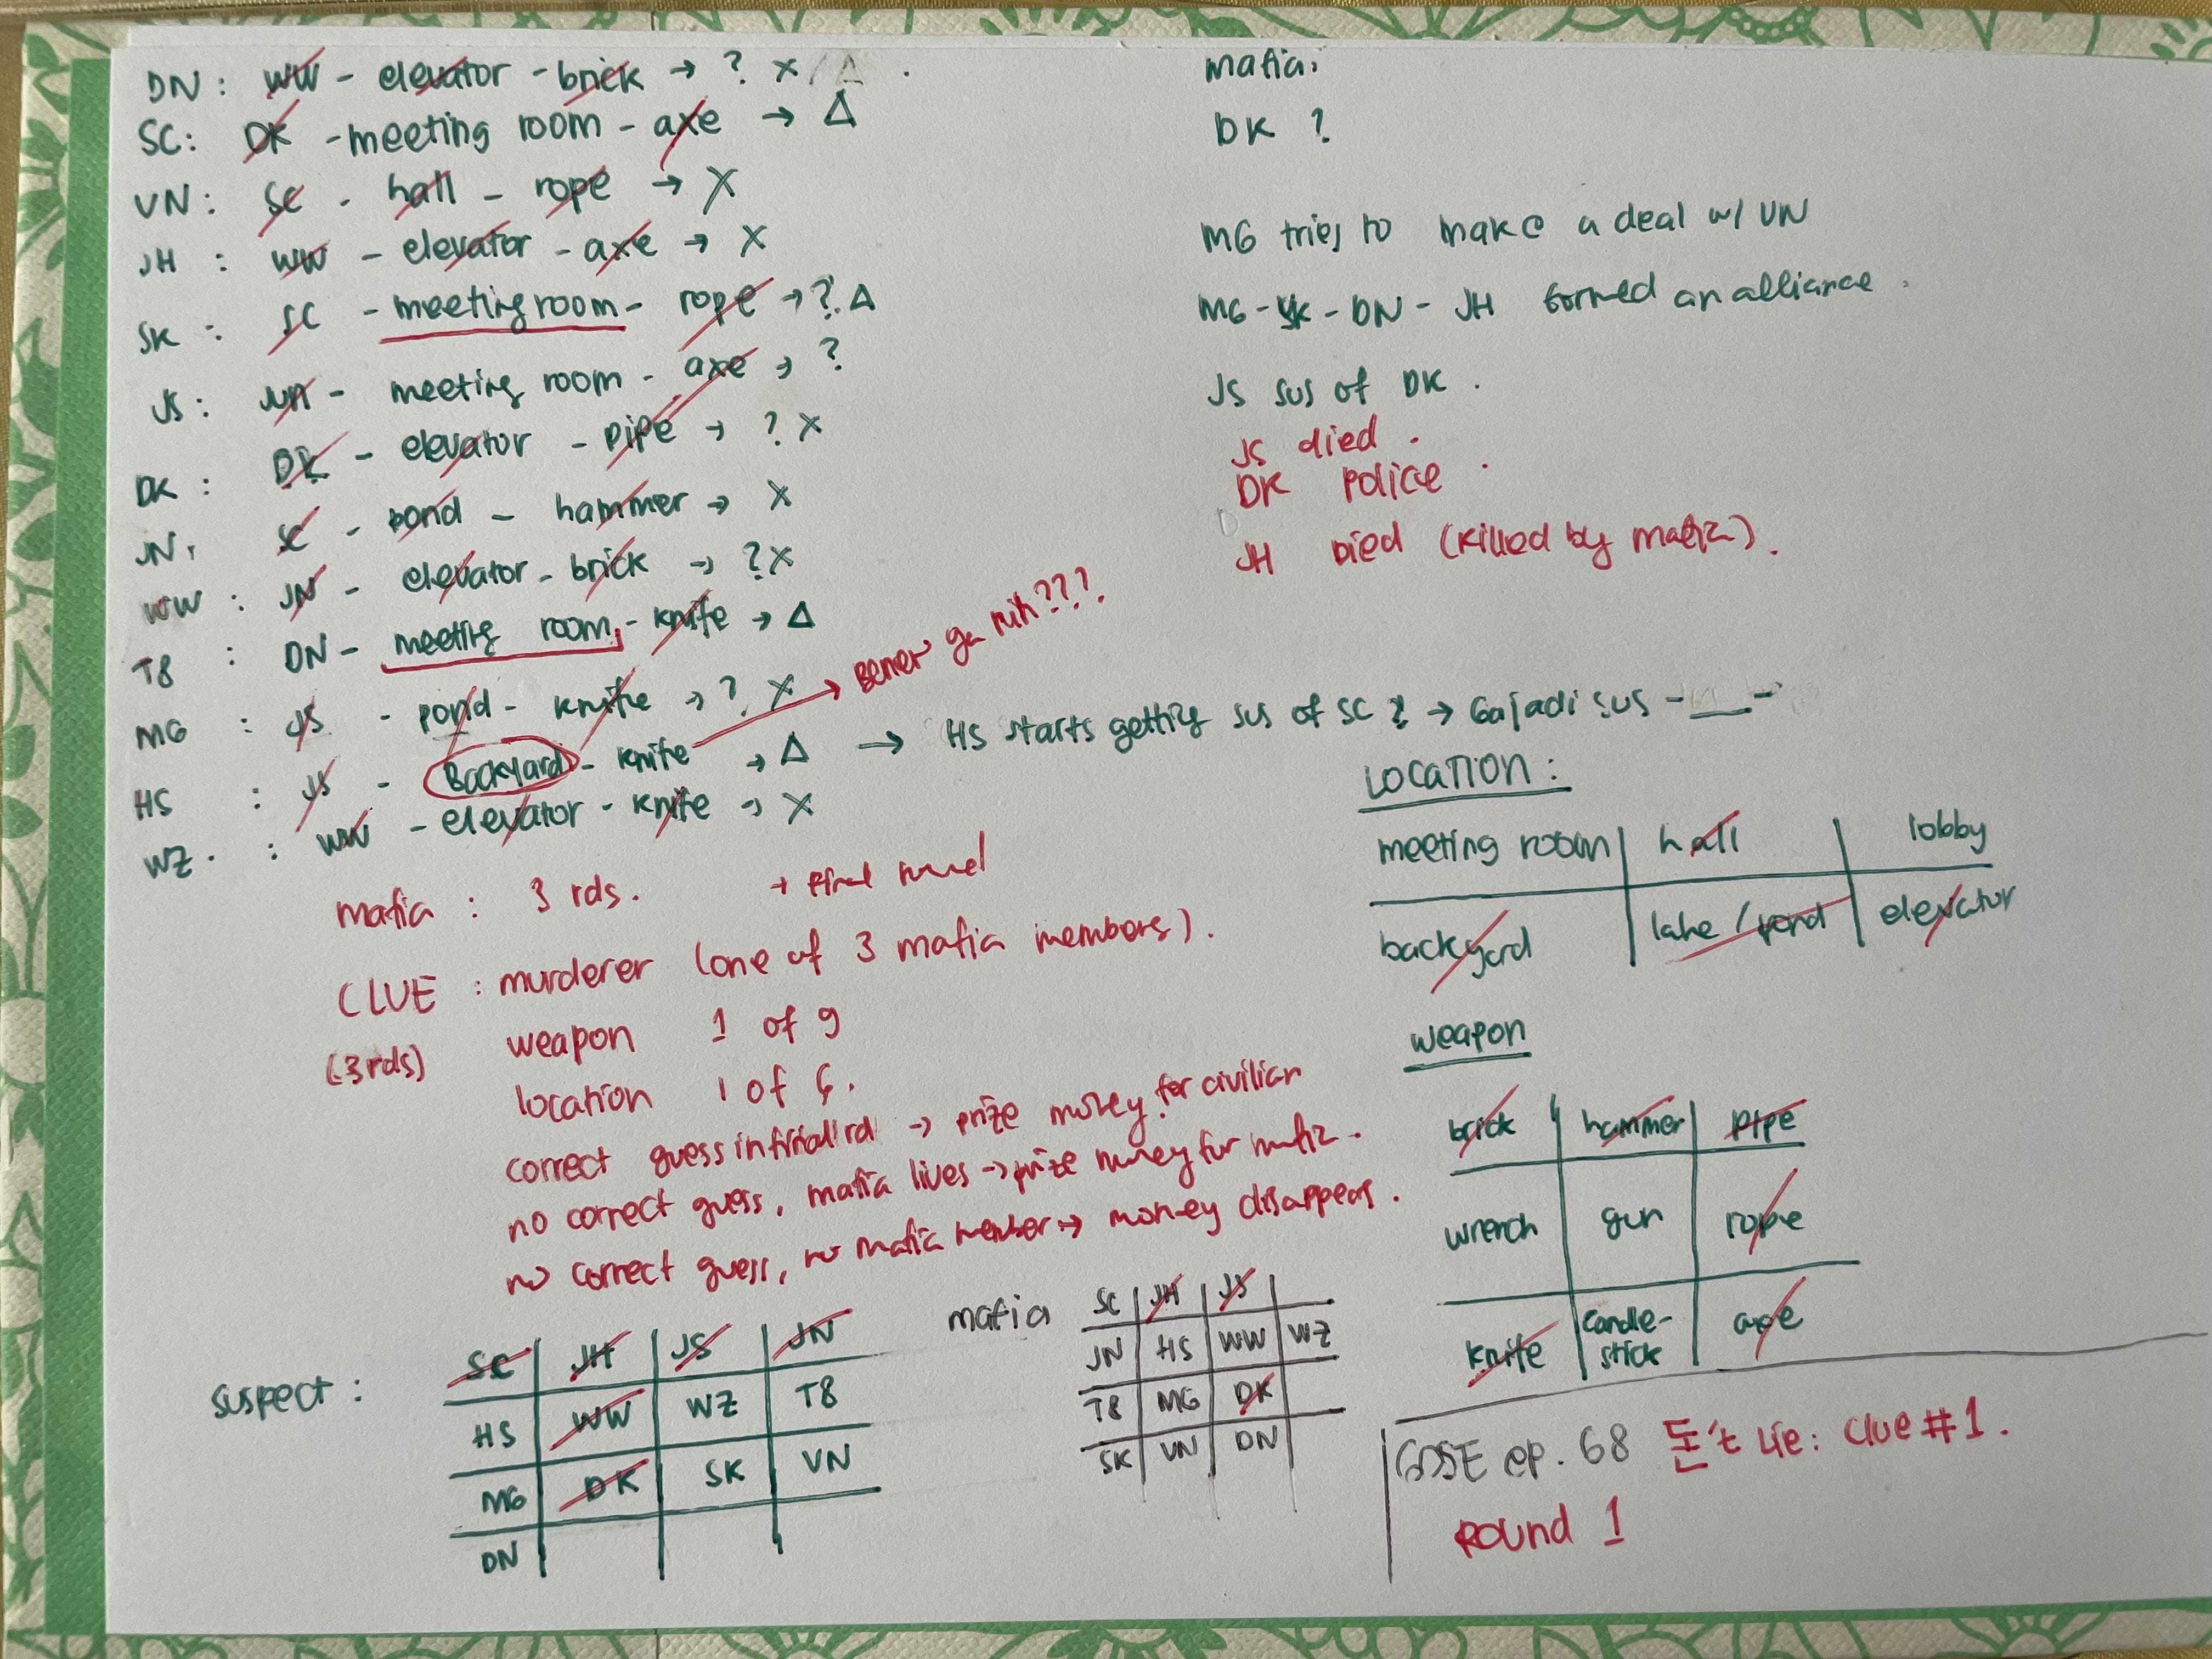 DN : WW - elevator - brick → ? x / Δ .
SC : DK - meeting room - axe → Δ
VN : SC - hall - rope → X
JH : WW - elevator - axe → X
SK : SC - meeting room - rope → ? Δ
JS : JN - meeting room - axe → ?
DK : DK - elevator - pipe → ? X
JN : SC - pond - hammer → X
WW : JN - elevator - brick → ? X
T8 : DN - meeting room - knife → Δ
MG : JS - pond - knife → ? X
HS : JS - Backyard - knife → Δ → HS starts getting sus of SC ? → Gajadi sus
Bener ga nih???
WZ . : WW - elevator - knife → X
mafia :
DK ?
MG tries to make a deal w/ VN
MG - SK - DN - JH formed an alliance .
JS sus of DK .
JS died .
DK police .
JH Died (killed by mafia) .
mafia : 3 rds. + final round
CLUE : murderer (one of 3 mafia members) .
(3 rds) weapon 1 of 9
location 1 of 6 .
correct guess in final rd → prize money for civilian
no correct guess, mafia lives → prize money for mafia .
no correct guess, no mafia member → money disappears .
LOCATION :
meeting room hall lobby
backyard lake / pond elevator
weapon
brick hammer pipe
wrench gun rope
knife candle-
stick axe
suspect :
SC JH JS JN
HS WW WZ T8
MG DK SK VN
DN
mafia
SC JH JS
JN HS WW WZ
T8 MG DK
SK VN DN
GOSE ep. 68 돈't Lie : Clue #1 .
ROUND 1